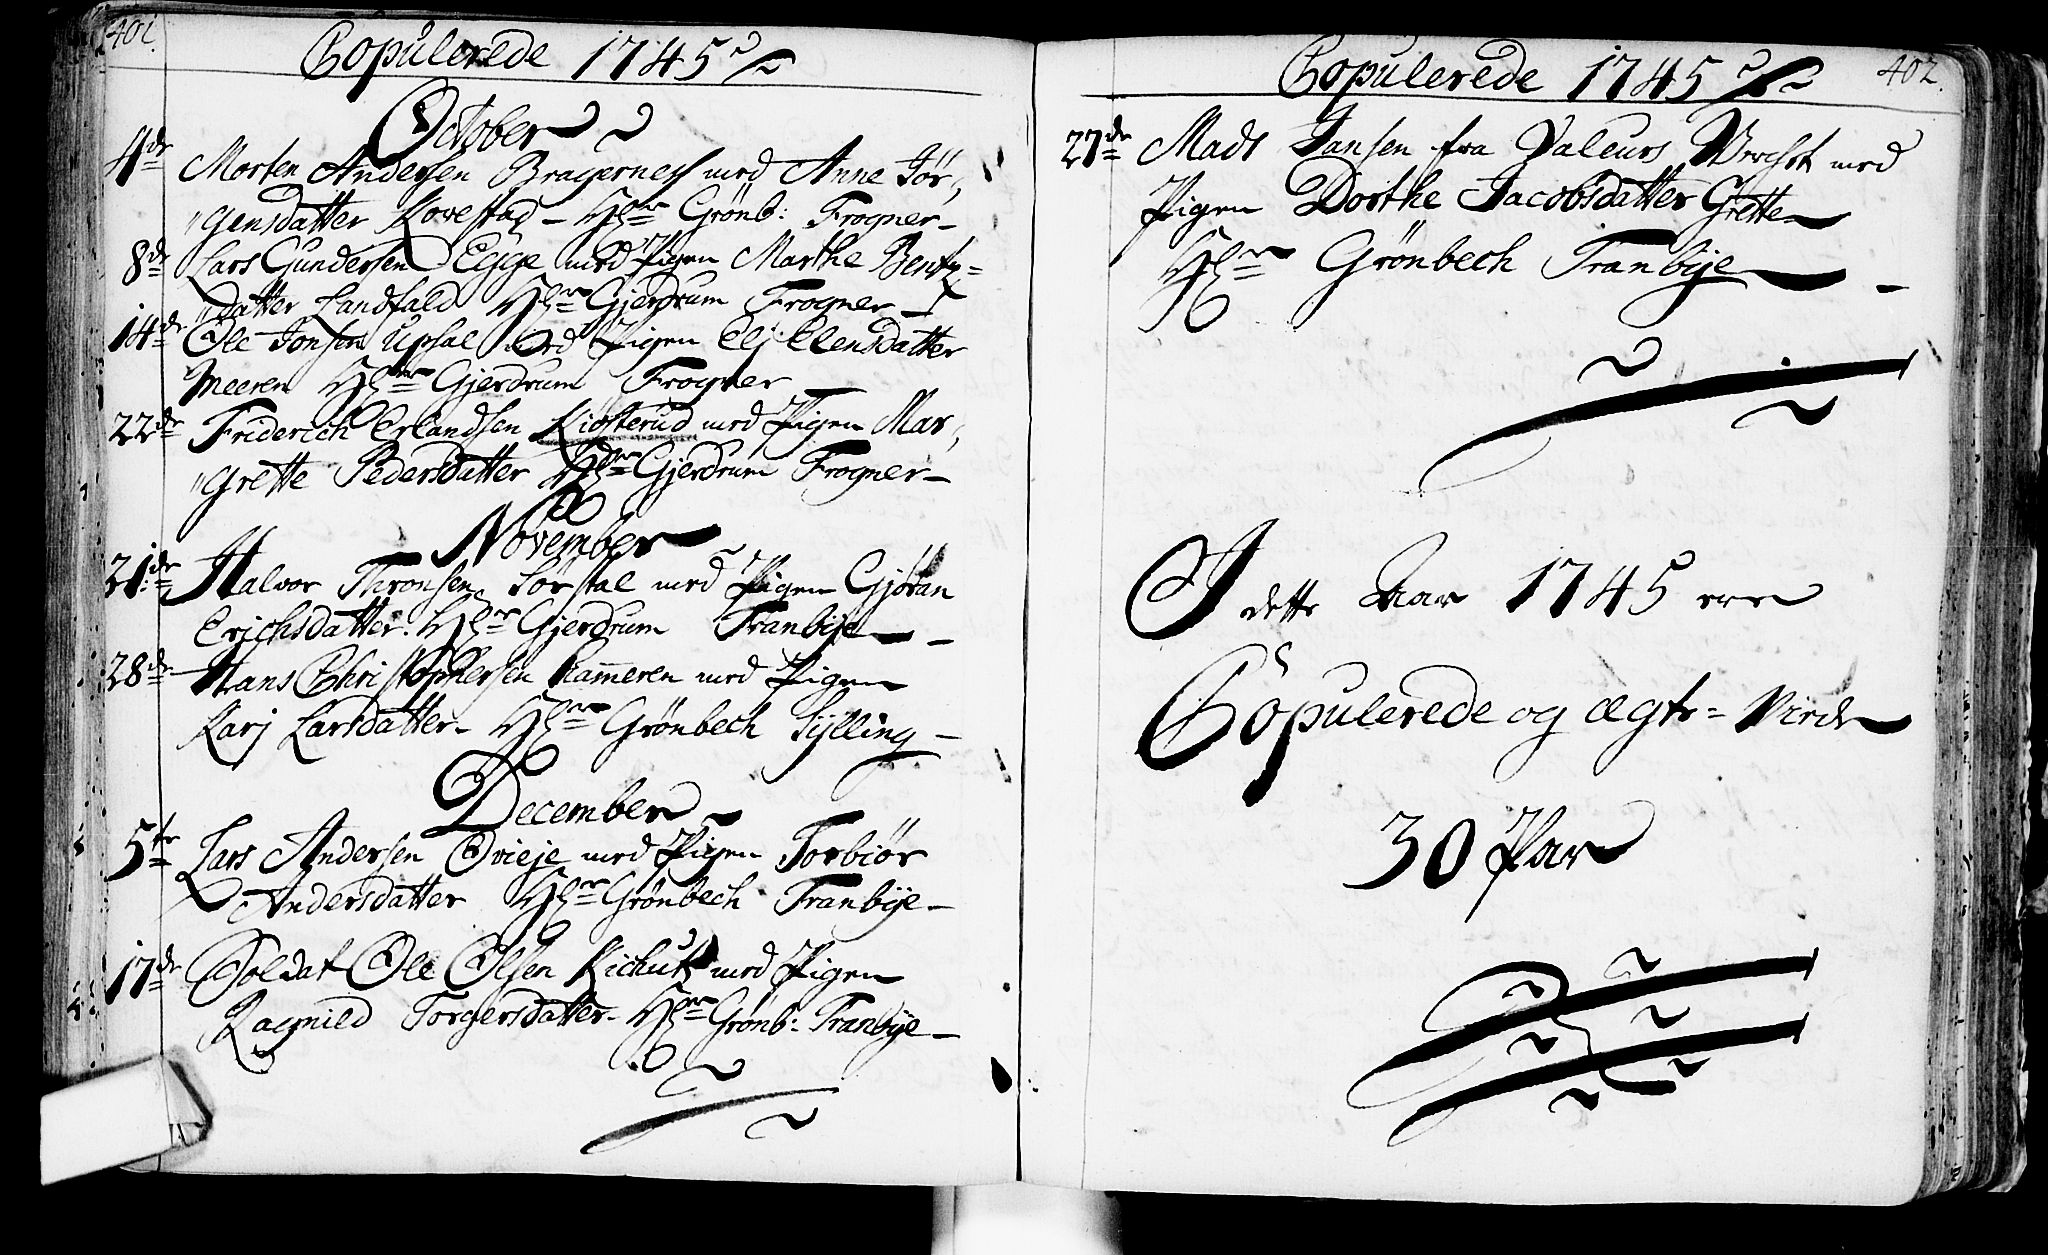 401.
Copulerede 1745
October
4de Morten Andersen Bragernes med Anne Jør,
"gensdatter Kovestad – Hr Grönb: Frogner –
8de Lars Gundersen Egge med Pigen Marthe Bentz=
"datter Landfald Hr Gjerdrum Frogner –
14de Ole Jonsen Upsal med Pigen Elj Elensdatter
Meeren Hr Gjerdrum Frogner –
22de Friderich Erlandsen Kiøsterud med Pigen Mar,
"grette Pedersdatter Hr Gjerdrum Frogner –
November
21de Halvor Thronsen Sørstal med Pigen Gjøran
Erichsdatter. Hr Gjerdrum Tranbye –
28de Hans Christophersen Ham̄eren med Pigen
Karj Larsdatter – Hr Grönbech Sylling –
December
5te Lars Andersen Ovieje med Pigen Torbiør
Andersdatter Hr Grönbech Tranbye –
17de Soldat Ole Olsen Kichut med Pigen
Ragnild Torgersdatter – Hr Grönb: Tranbye –
Copulerede 1745
402.
27de Mads Jansen fra Valeurs Verchst med
Pigen Dorthe Jacobsdatter Grette
Hr Grönbech Tranbye –
I dette Aar 1745 ere
Copulerede og ægte = Viede
30 Par